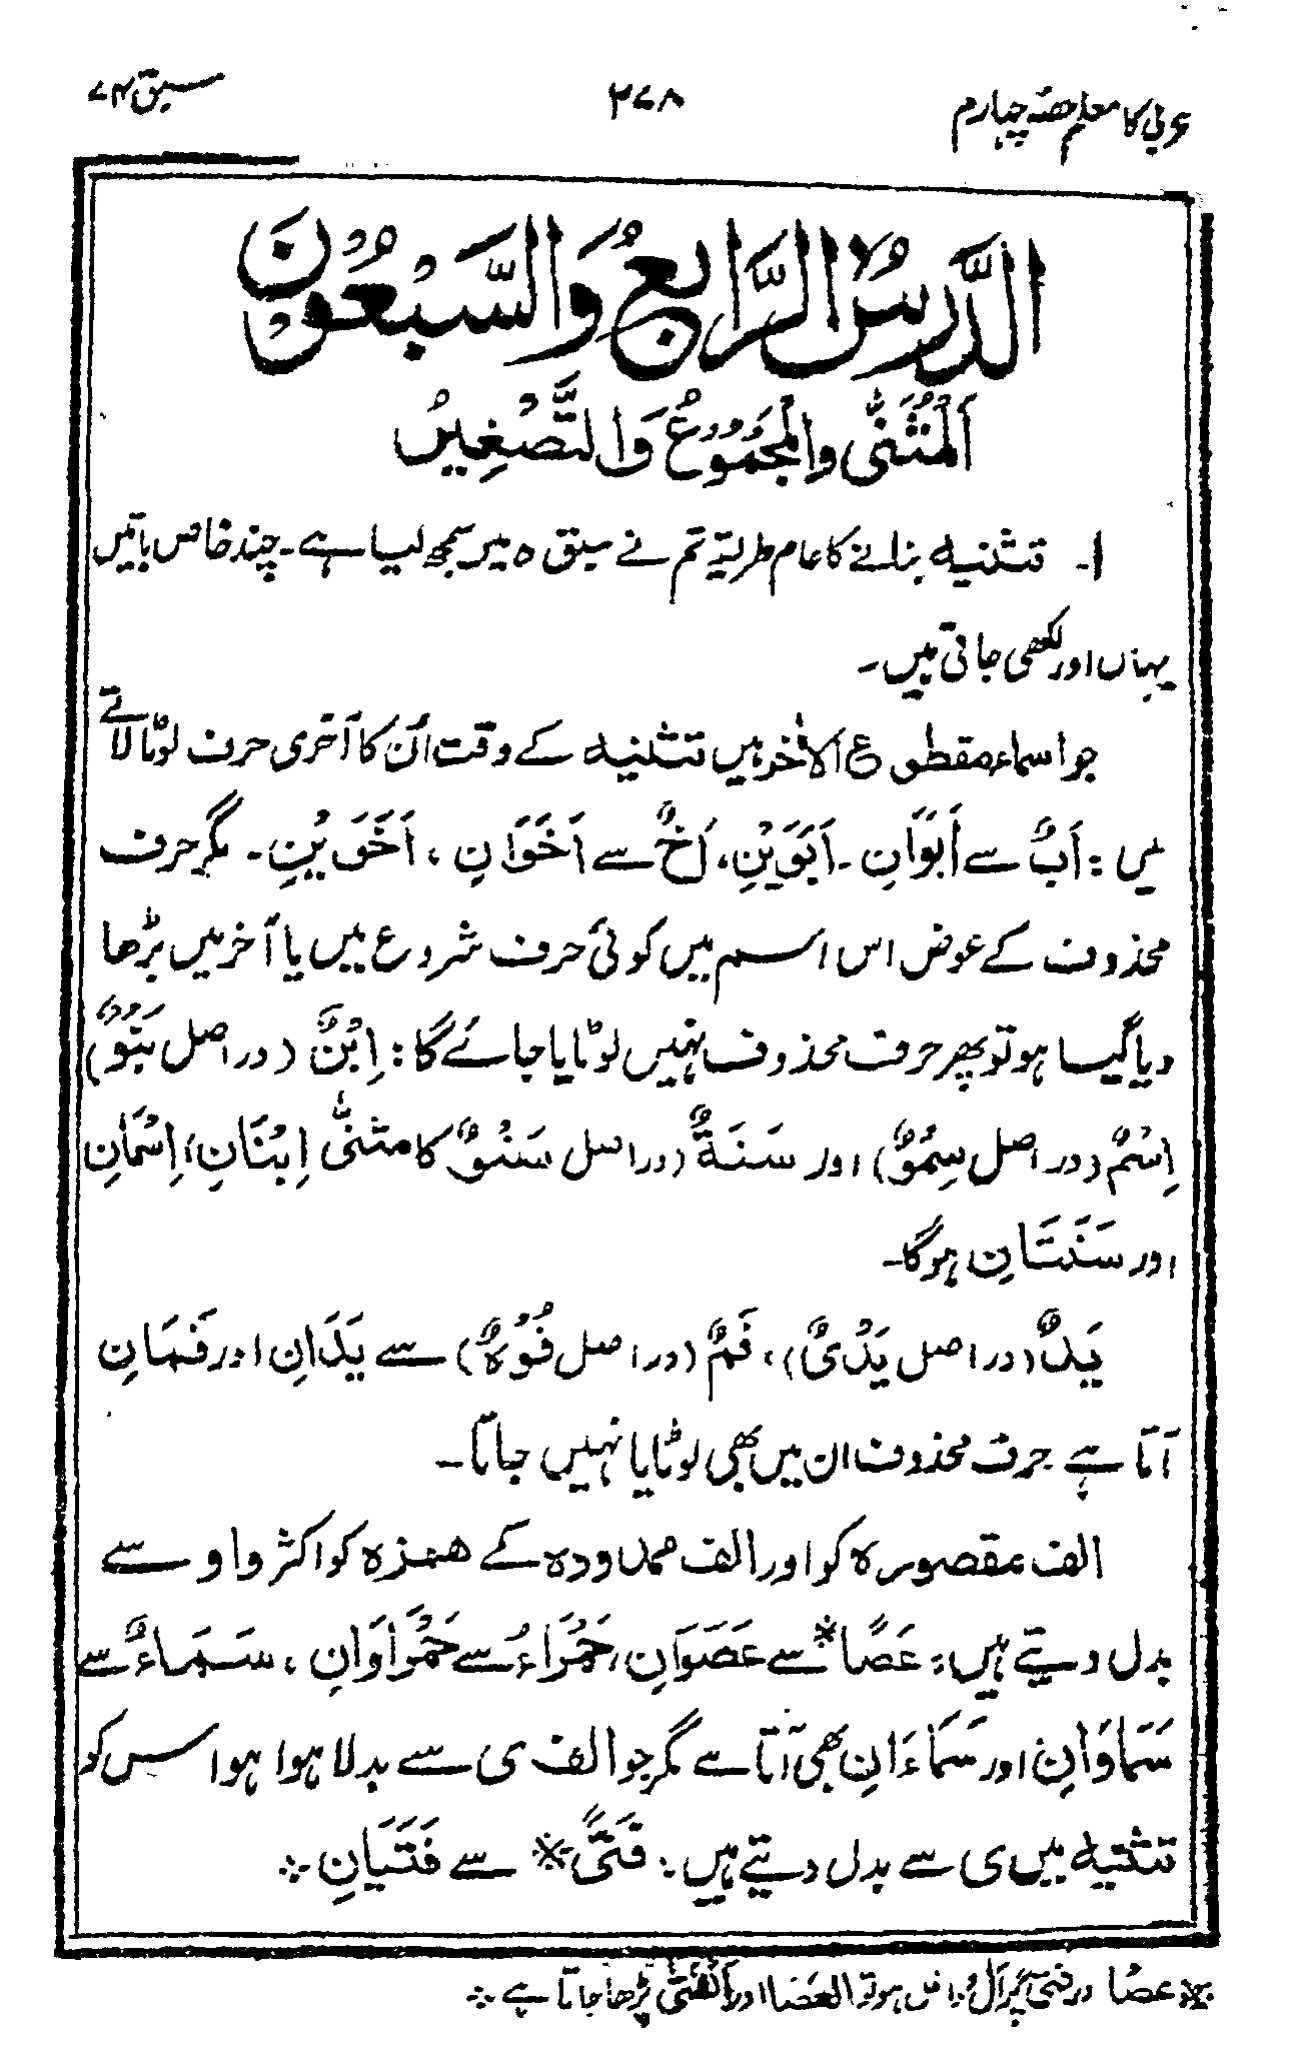 عربی کا معلم حصّہ چہارم
۲۷۸
سبق ۷۴
الدَّرْسُ الرَّابِعُ وَالسَّبْعُوْنَ
اَلْمُثَنّٰی وَالْمَجْمُوْعُ وَالتَّصْغِیْرُ
۱۔ تثنیہ بنانے کا عام طریقہ تم نے سبق ۵ میں سمجھ لیا ہے۔ چند خاص باتیں
یہاں اور لکھی جاتی ہیں۔
جو اسماء مقطوع الآخر ہیں تثنیہ کے وقت اُن کا آخری حرف لوٹا لاتے
ہیں : اَبٌ سے اَبَوَانِ ۔ اَبَوَیْنِ، اَخٌ سے اَخَوَانِ ، اَخَوَیْنِ ۔ مگر حرف
محذوف کے عوض اس اسم میں کوئی حرف شروع میں یا آخر میں بڑھا
دیا گیا ہو تو پھر حرف محذوف نہیں لوٹایا جائے گا : اِبْنٌ (در اصل بَنَوٌ)
اِسْمٌ (در اصل سِمْوٌ) اور سَنَةٌ (در اصل سَنْوٌ کا مثنّٰی اِبْنَانِ، اِسْمَانِ
اور سَنَتَانِ ہوگا۔
یَدٌ (در اصل یَدْیٌ) ، فَمٌ (در اصل فُوْهٌ) سے یَدَانِ اور فَمَانِ
آتا ہے حرف محذوف ان میں بھی لوٹایا نہیں جاتا۔
الف مقصورہ کو اور الف ممدودہ کے ھمزہ کو اکثر واو سے
بدل دیتے ہیں : عَصًا* سے عَصَوَانِ، حَمْرَاءُ سے حَمْرَاوَانِ ، سَمَاءٌ سے
سَمَاوَانِ اور سَمَاءَانِ بھی آتا ہے مگر جو الف ی سے بدلا ہوا ہو اس کو
تثنیہ میں ی سے بدل دیتے ہیں : فَتًی* سے فَتَیَانِ ۔
* عصًا اور فتًی پر اَل داخل ہو تو العَصَا اور اَلْفَتٰی پڑھا جاتا ہے